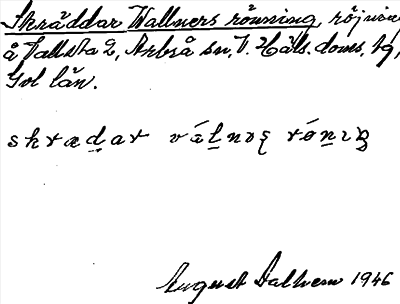 Skräddar Wallners rönning, röjning
å Vallsta 2, Arbrå sn, V. Häls. doms. hg,
Gvl län.
skræḍar vál̲nɒʂ rón̲ɪŋ
August Dalhem 1946